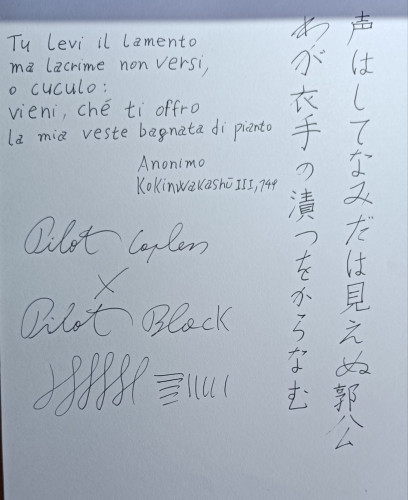 Tu levi il lamento
ma lacrime non versi,
o cuculo:
vieni, ché ti offro
la mia veste bagnata di pianto
Anonimo
Kokinwakashū III, 149
Pilot Capless
×
Pilot Black
声はしてなみだは見えぬ郭公
わが衣手の漬つをからなむ